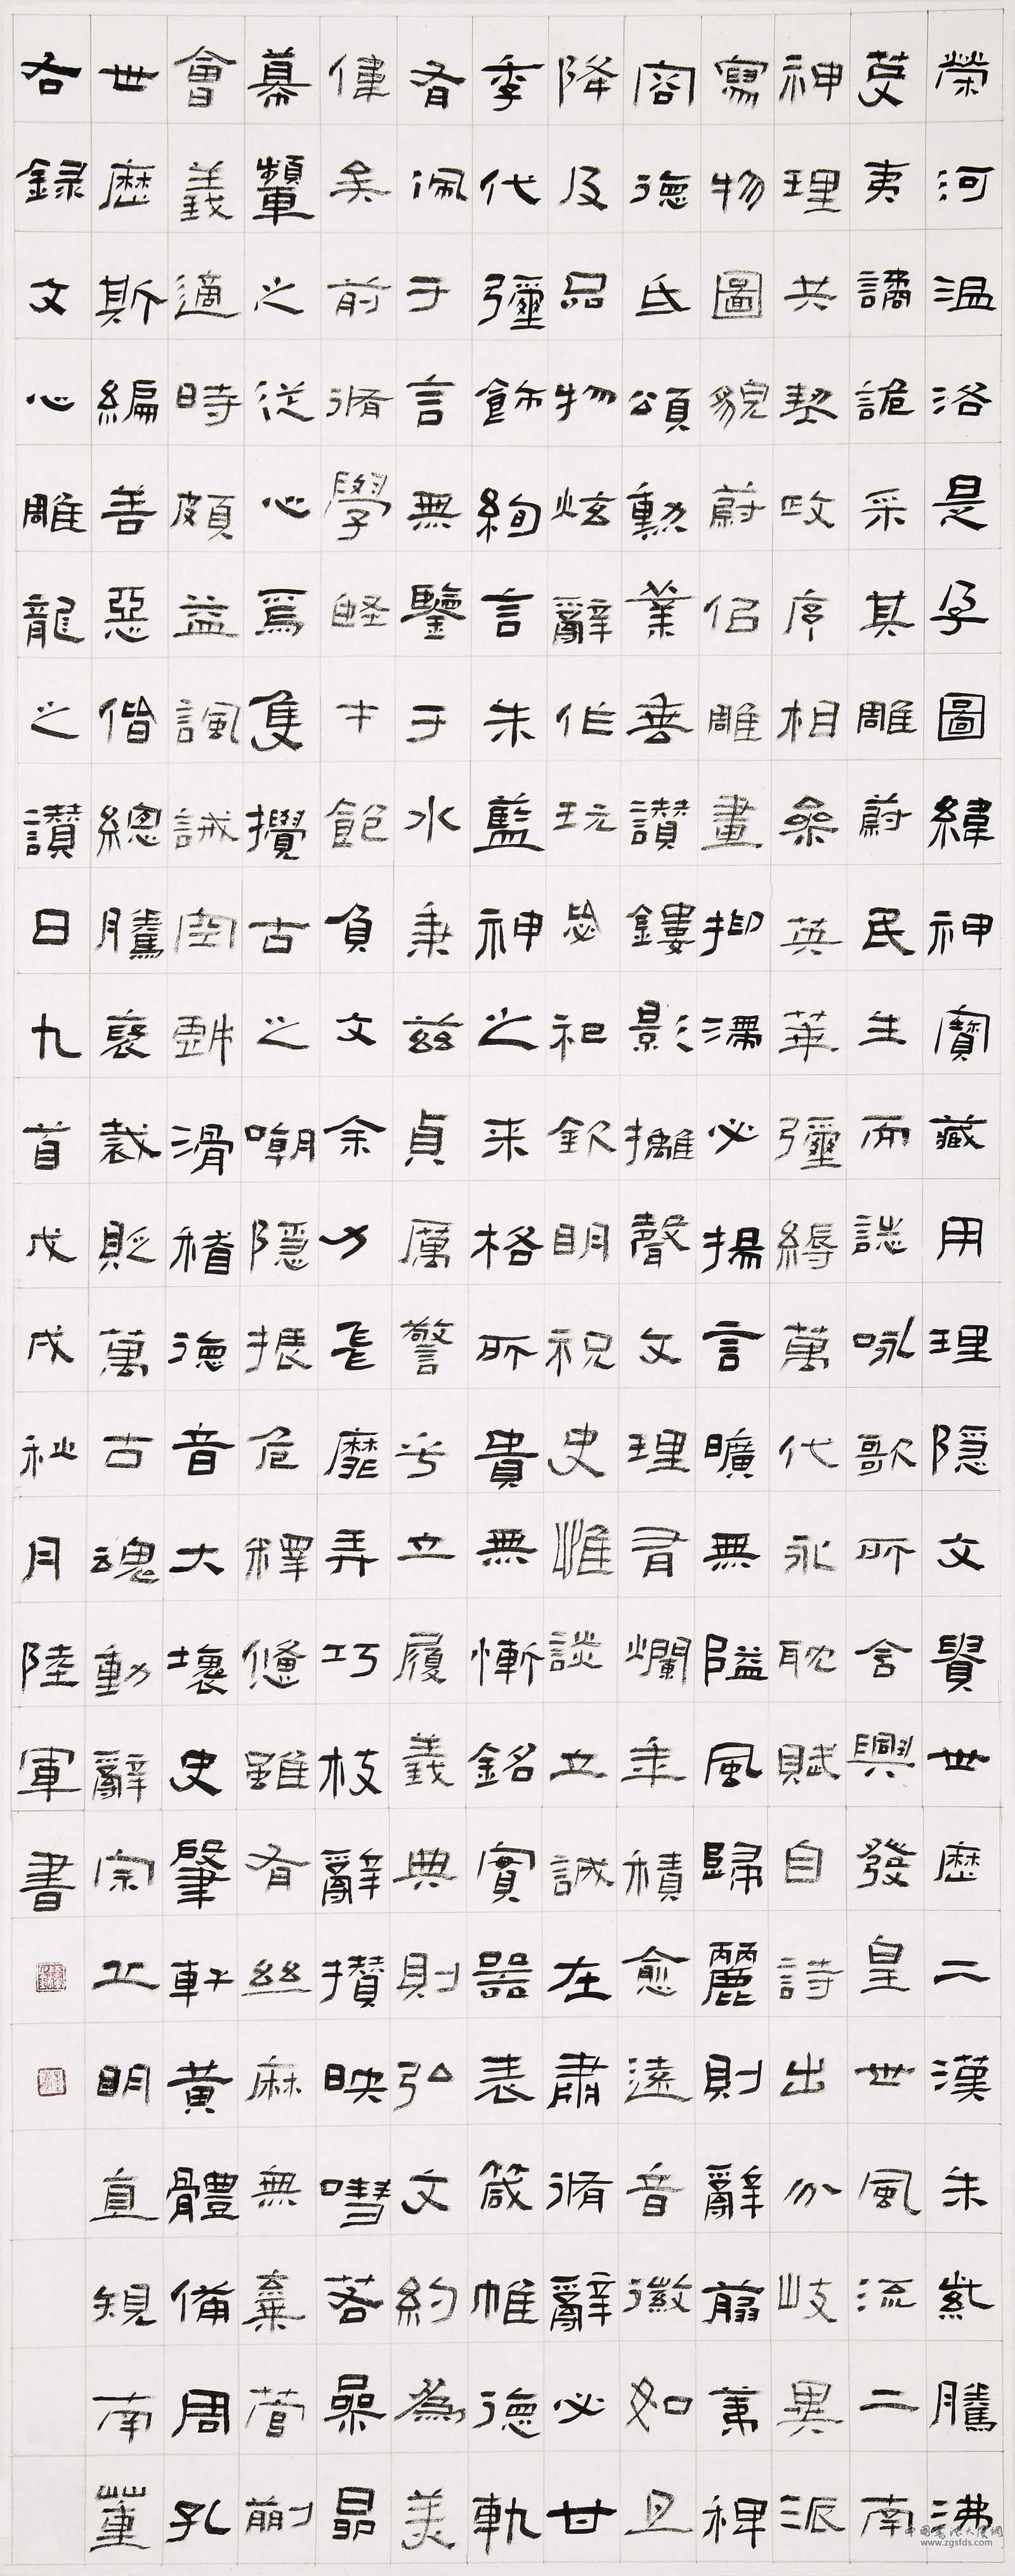 榮河溫洛是孕圖緯神寶藏用理隱文貴世歷二漢朱紫騰沸
芟夷譎詭采其雕蔚民生而誌詠歌所含興發皇世風流二南
神理共契政序相參英華彌縟萬代永耽賦自詩出分岐異派
寫物圖貌蔚佀雕畫抑滯必揚言曠無隘風歸麗則辭翦荑稗
容德氐頌勳業垂讚鏤影攡聲文理有爛年積愈遠音徽如旦
降及品物炫辭作玩毖祀欽明祝史惟談立誠在肅脩辭必甘
季代彌飾絢言朱藍神之來格所貴無慚銘實器表箴帷德軌
有佩于言無鑒于水秉茲貞厲警乎立履義典則弘文約為美
偉矣前脩學堅才飽負文余力飛靡弄巧枝辭攢映嘒若參昴
幕顰之從心焉隻攪古之嘲隱振危釋憊雖有絲麻無棄菅蒯
會義適時頗益諷誡空戲滑稽德音大壞史肇軒黃體備周孔
世歷斯編善惡偕總騰褒裁貶萬古魂動辭宗丘明直規南董
右録文心雕龍之讚曰九首戊戌秋月陸軍書
中国书法大厦网
www.zgsfds.com